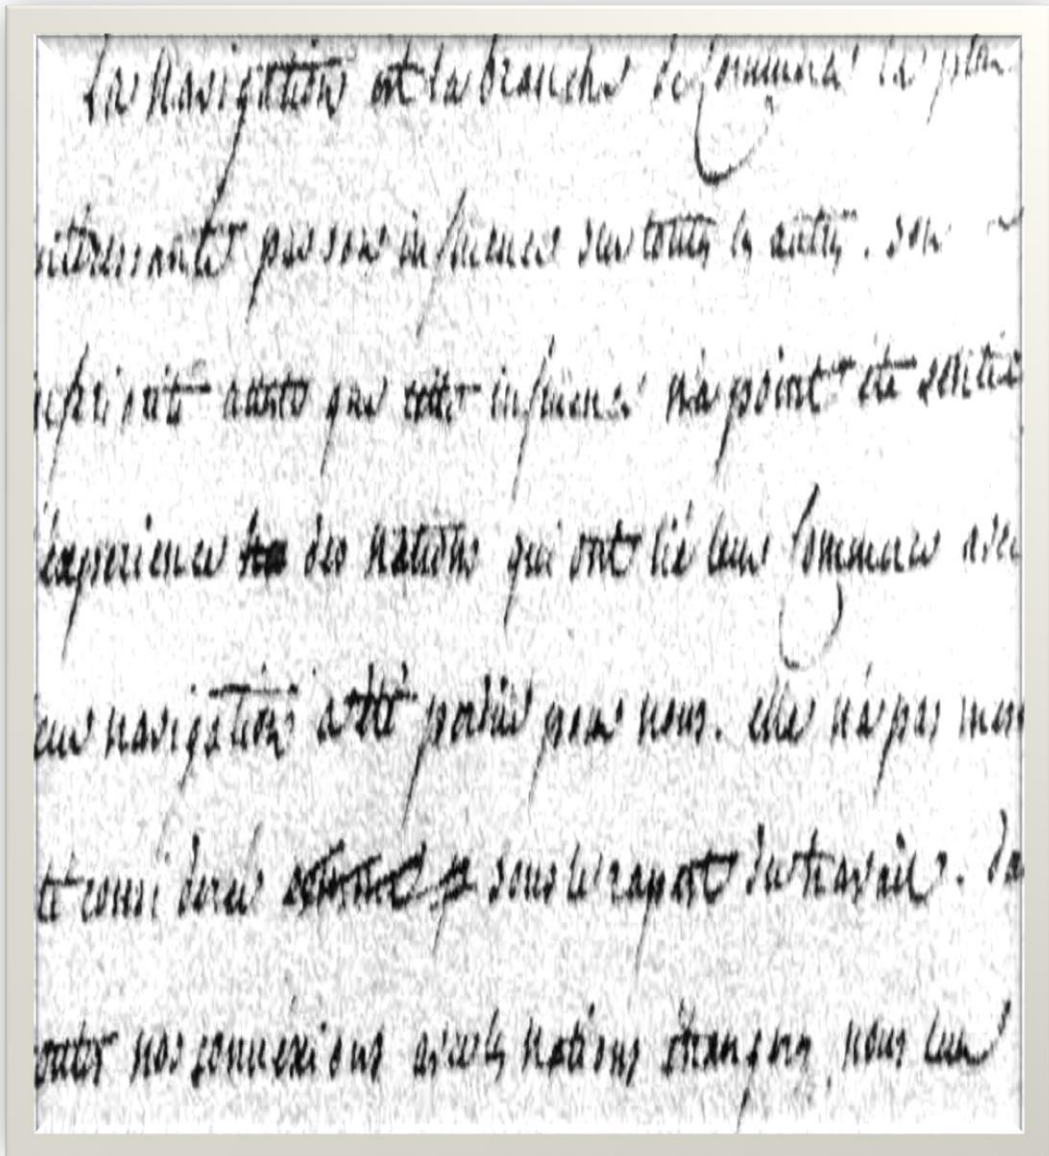 La Navigation est la branche de Commerce la plus
interessante par son influence sur toutes les autres. son
que cette influence n'a point été sentie
experience des nations qui ont lié leur Commerce avec
leur navigation a été perdue pour nous. elle n'a pas
été considerée sous le raport du travail. da
toutes nos connexions avec les nations etrangeres, nous leur